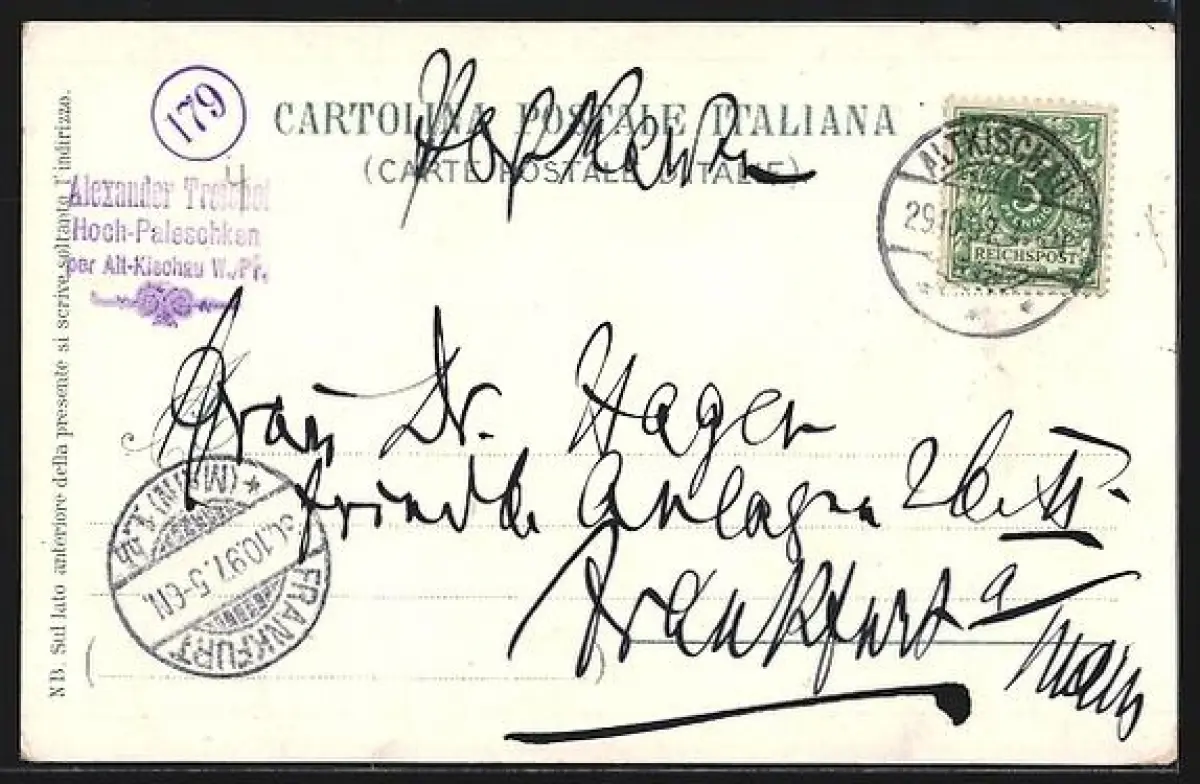 179
CARTOLINA POSTALE ITALIANA
(CARTE POSTALE D'ITALIE).
Postkarte
Alexander Treichel
Hoch-Paleschken
per Alt-Kischau W./Pr.
ALTKISCHAU
29.10.97
5
PFENNIG
REICHSPOST
Frau Dr. Hagen
Anlage 26 II.
Frankfurt a
Main
FRANKFURT
(MAIN) 1. *
31.10.97. 5-6N.
NB. Sul lato anteriore della presente si scrive soltanto l'indirizzo.